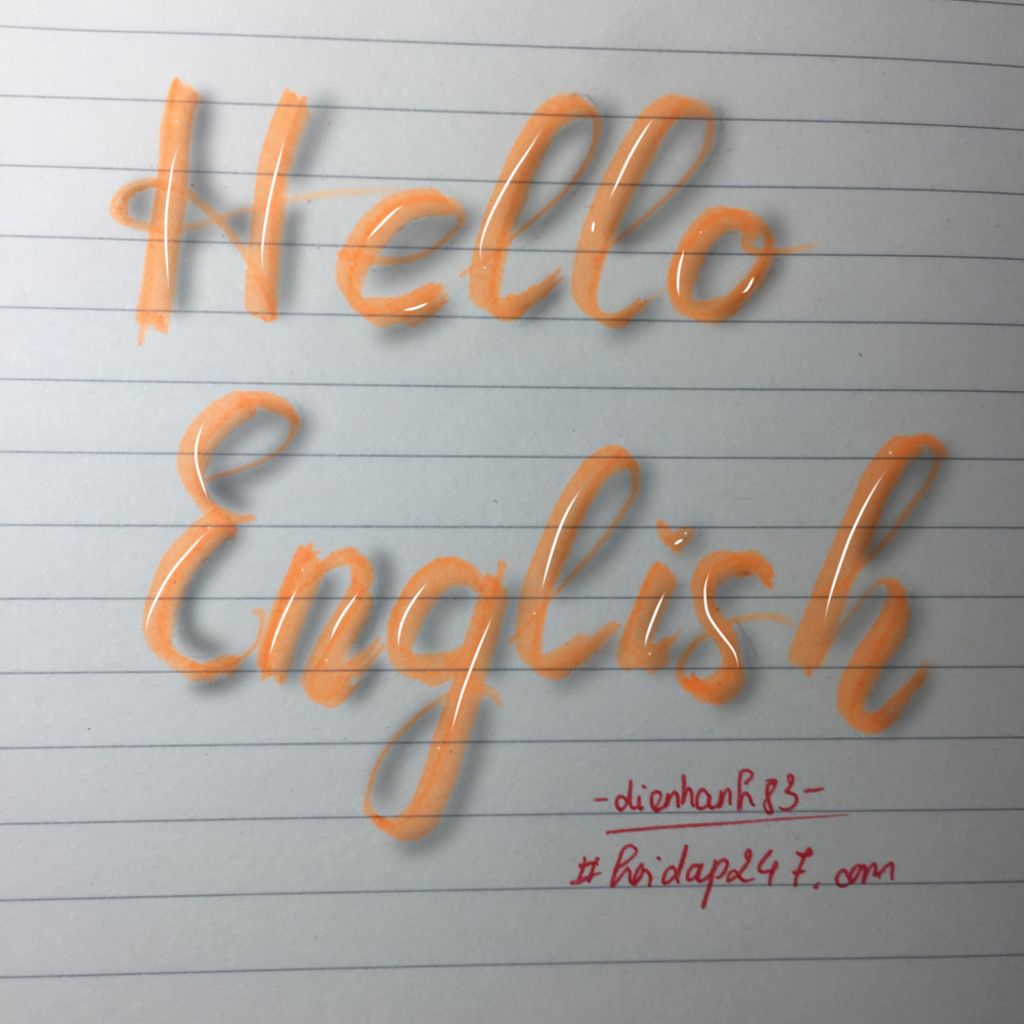 Hello
English
-dienhanh83-
#hoidap247.com